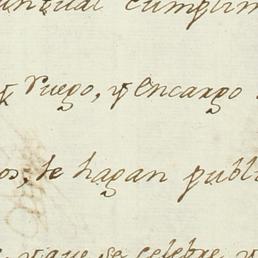 untual cumplim
y ruego, y encargo
os, se hagan publi
y que se celebre, y